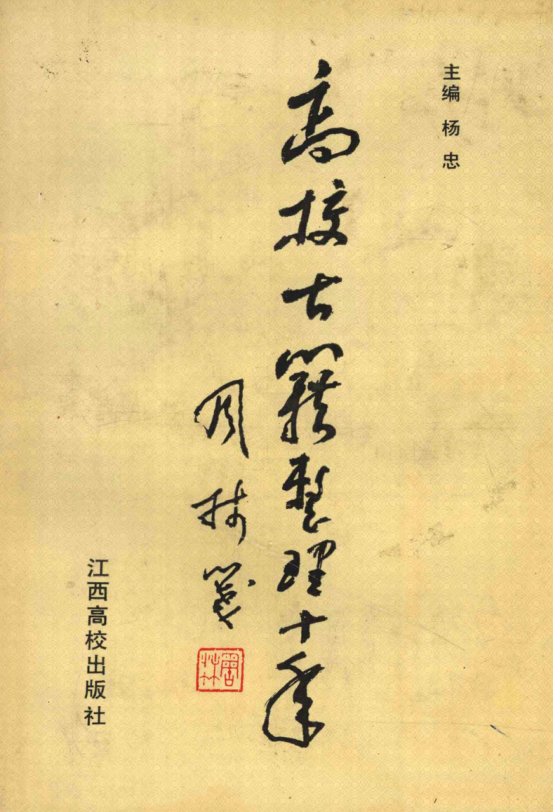 主编 杨忠
高校古籍整理十年
周林笺
周林
江西高校出版社